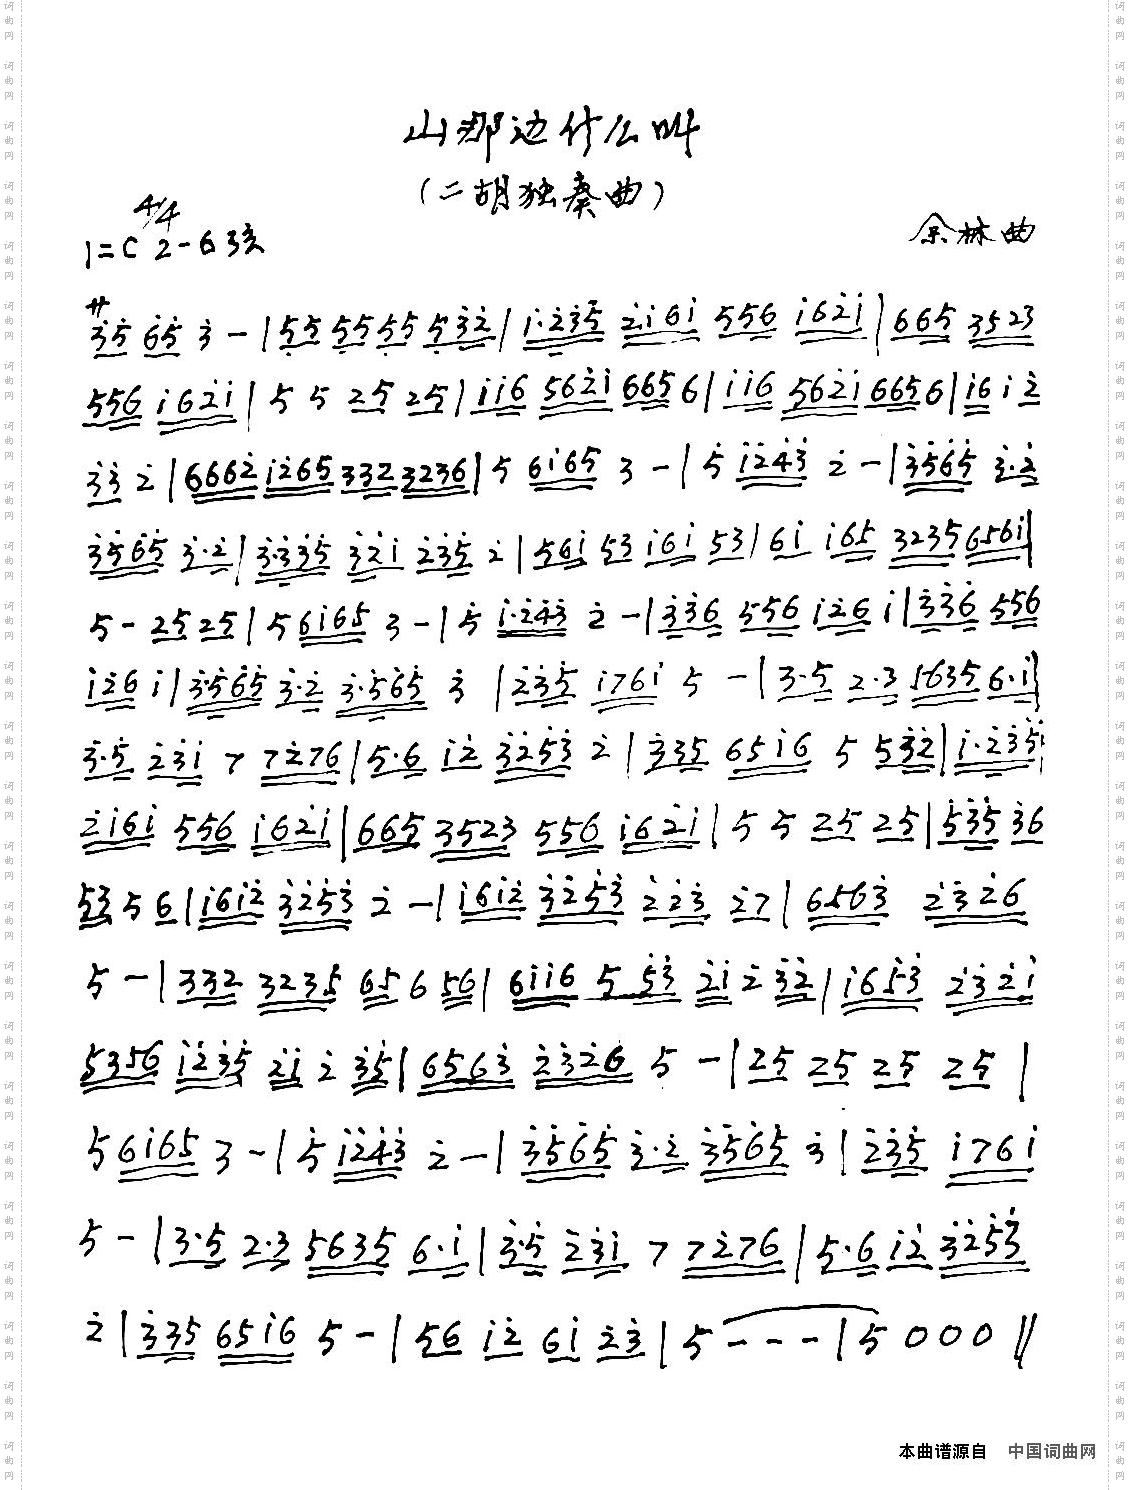 山那边什么叫
(二胡独奏曲)
4/4
1=C 2-6弦
余林曲
サ
3̇5̇ 6̇5̇ 3̇ - | 55 55 55 53̇2̇ | 1̇·2̇3̇5̇ 2̇1̇61̇ 556 1̇62̇1̇ | 665 3523
556 1̇62̇1̇ | 5 5 25 25 | 1̇1̇6 562̇1̇ 665 6 | 1̇1̇6 562̇1̇ 665 6 | 1̇6 1̇ 2̇
3̇3̇ 2̇ | 6662̇ 1̇265 332 3236 | 5 61̇65 3 - | 5̇ 1̇2̇4̇3̇ 2̇ - | 3̇5̇6̇5̇ 3̇·2̇
3̇5̇6̇5̇ 3̇·2̇ | 3̇·3̇3̇5̇ 3̇2̇1̇ 2̇3̇5̇ 2̇ | 561̇ 53 1̇61̇ 53 | 61̇ 1̇65 3235 6561̇ |
5 - 25 25 | 5 61̇65 3 - | 5̇ 1̇·2̇4̇3̇ 2̇ - | 3̇3̇6 556 1̇2̇6 1̇ | 3̇3̇6̇ 556
1̇2̇6 1̇ | 3̇·5̇6̇5̇ 3̇·2̇ 3̇·5̇6̇5̇ 3̇ | 2̇3̇5̇ 1̇761̇ 5 - | 3·5 2·3 5635 6·1̇ |
3̇·5̇ 2̇3̇1̇ 7 72̇76 | 5·6 1̇2̇ 3̇2̇5̇3̇ 2̇ | 3̇35 651̇6 5 53̇2̇ | 1̇·2̇3̇5̇
2̇1̇61̇ 556 1̇62̇1̇ | 665 3523 556 1̇62̇1̇ | 5 5 25 25 | 5̇3̇5̇ 3̇6
53 5 6 | 1̇61̇2̇ 3̇2̇5̇3̇ 2̇ - | 1̇61̇2̇ 3̇2̇5̇3̇ 2̇2̇3̇ 2̇7 | 6563̇ 2̇3̇2̇6
5 - | 332 3235 65 6 56 | 61̇1̇6 5 5̇3̇ 2̇1̇ 2̇ 3̇2̇ | 1̇653̇ 2̇3̇2̇1̇
5356 1̇2̇3̇5̇ 2̇1̇ 2̇ 3̇5̇ | 6563̇ 2̇3̇2̇6 5 - | 25 25 25 25 |
5 61̇65 3 - | 5̇ 1̇2̇4̇3̇ 2̇ - | 3̇5̇6̇5̇ 3̇·2̇ 3̇5̇6̇5̇ 3̇ | 2̇3̇5̇ 1̇761̇
5 - | 3·5 2·3 5635 6·1̇ | 3̇·5̇ 2̇3̇1̇ 7 72̇76 | 5·6 1̇2̇ 3̇2̇5̇3̇
2̇ | 3̇35 651̇6 5 - | 56 1̇2̇ 61̇ 2̇3̇ | 5 - - - | 5 0 0 0 ‖
本曲谱源自 中国词曲网